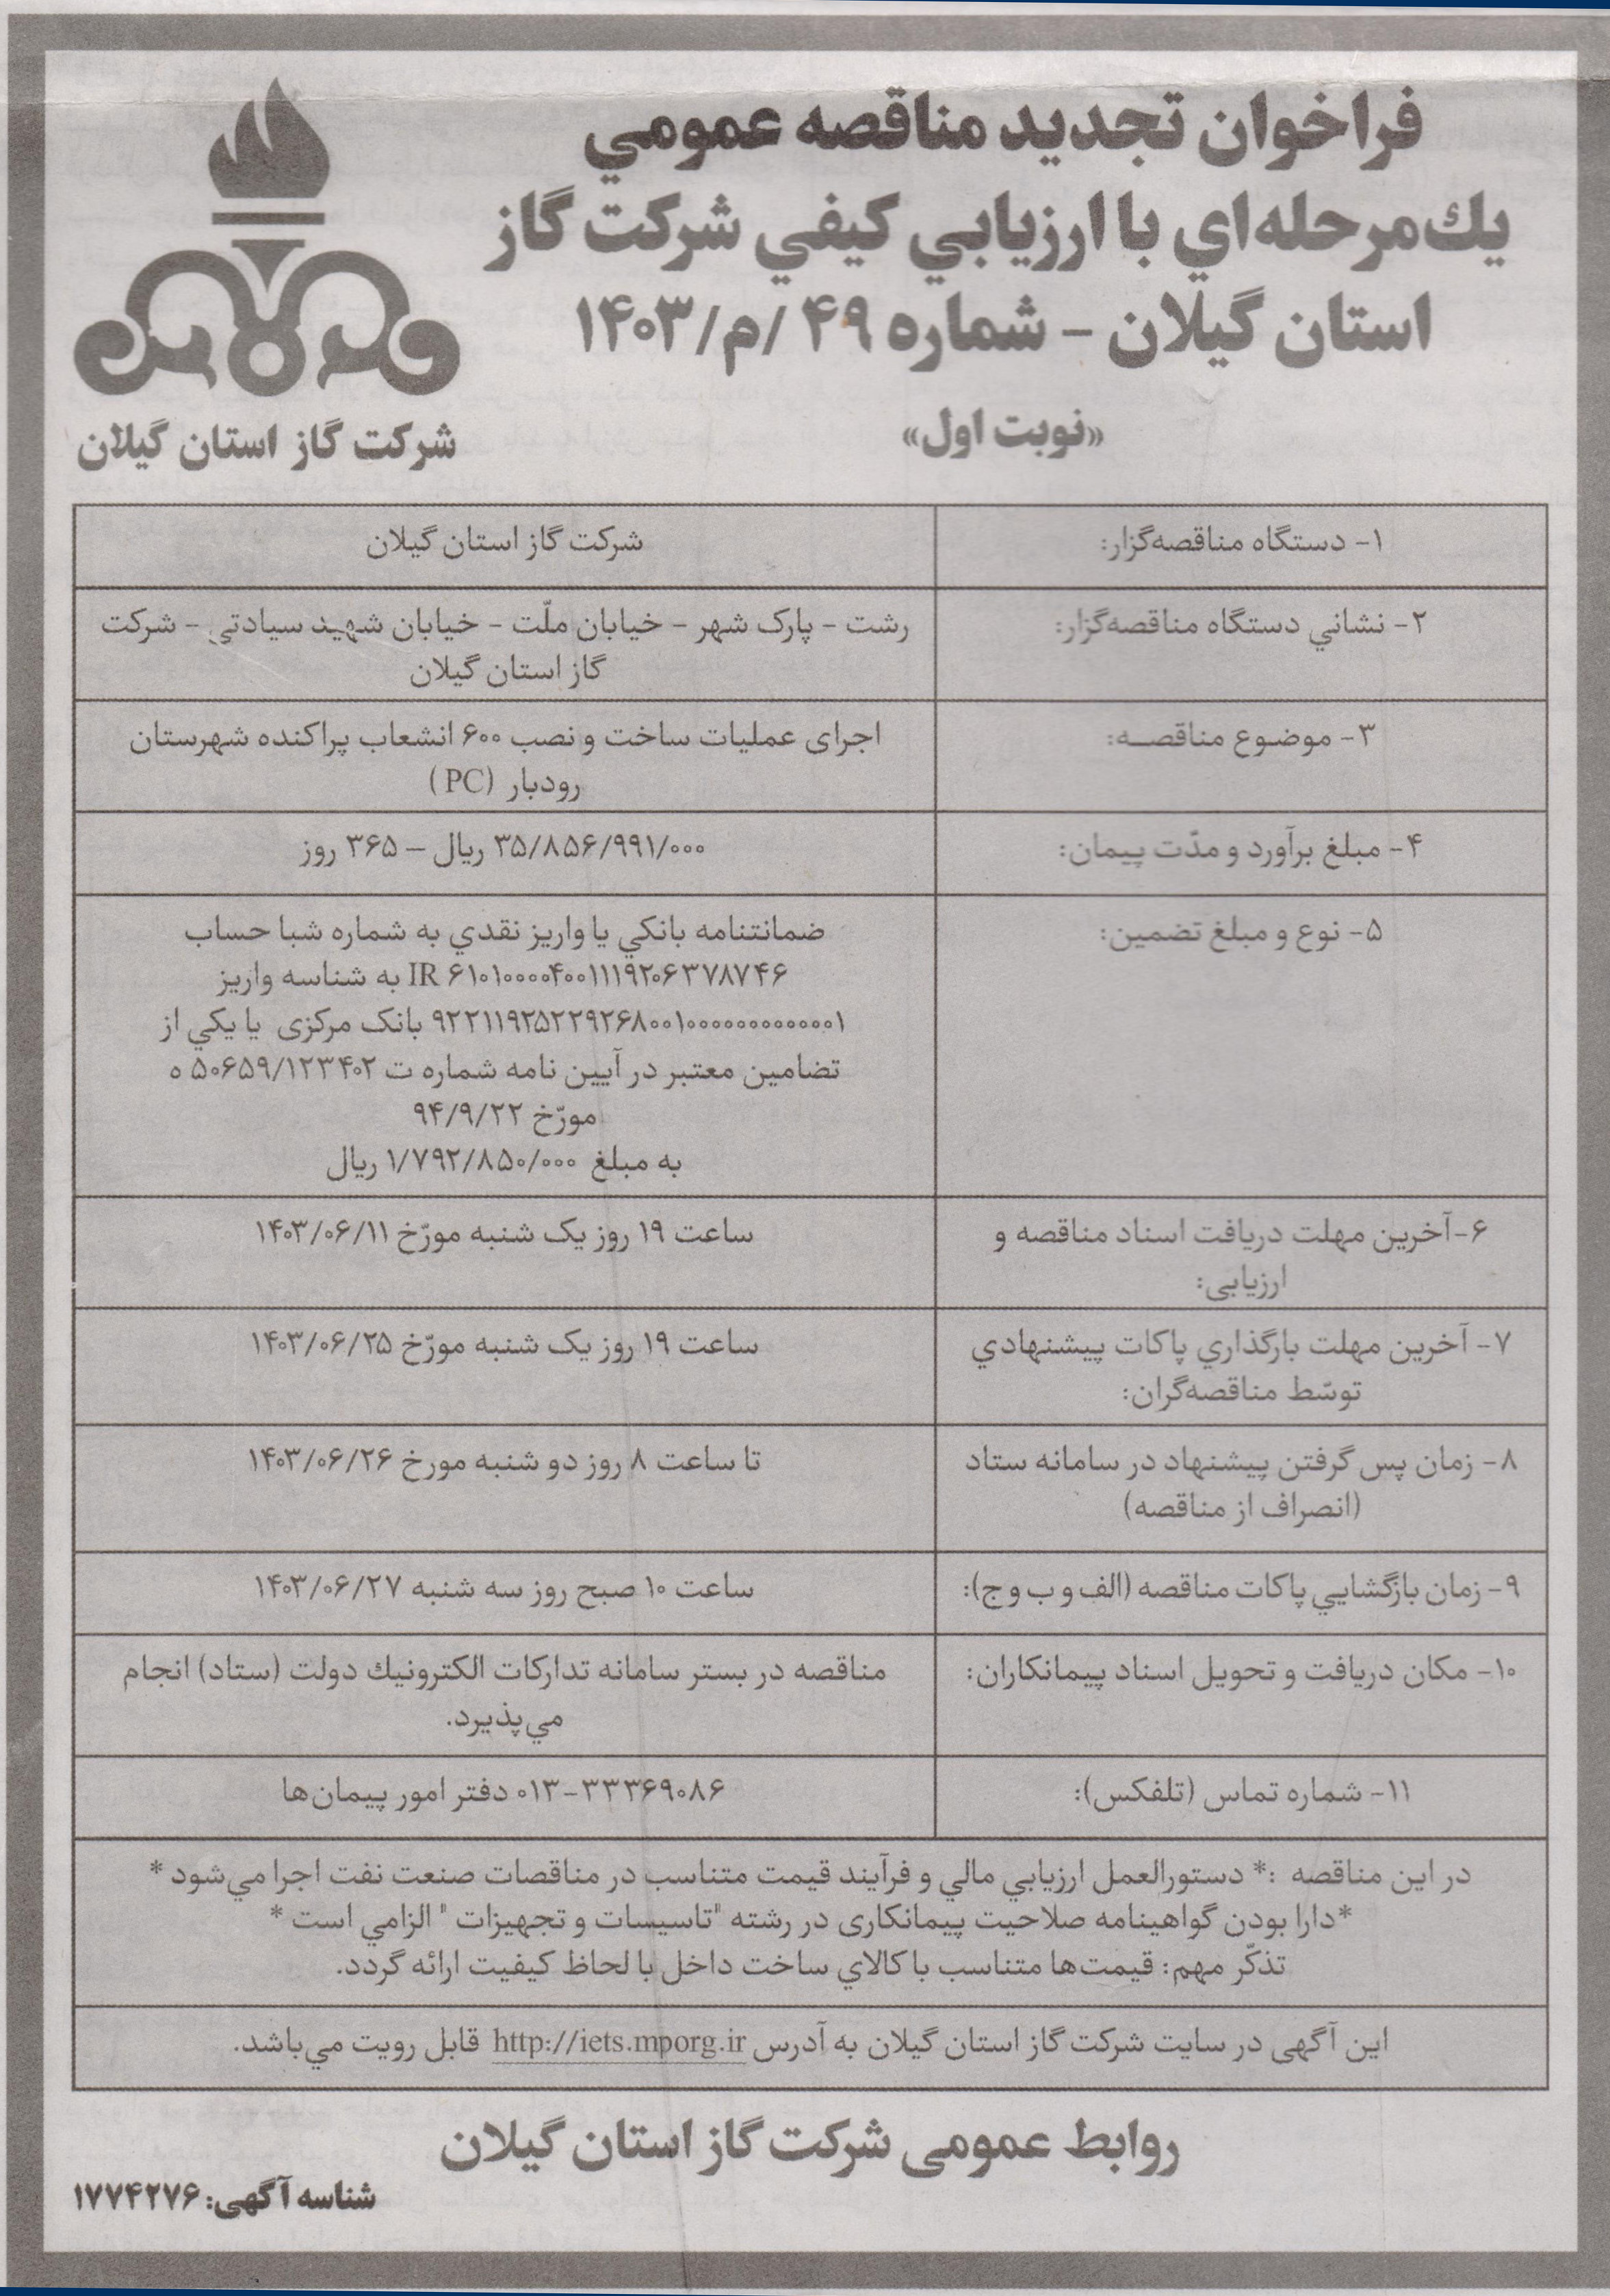 فراخوان تجدید مناقصه عمومي
يك‌مرحله‌اي با ارزيابي كيفي شركت گاز
استان گیلان – شماره ۴۹ /م/۱۴۰۳
«نوبت اول»
شرکت گاز استان گیلان
۱- دستگاه مناقصه‌گزار:
شرکت گاز استان گیلان
۲- نشاني دستگاه مناقصه‌گزار:
رشت - پارک شهر - خیابان ملّت - خیابان شهید سیادتی - شرکت
گاز استان گیلان
۳- موضوع مناقصـه:
اجرای عملیات ساخت و نصب ۶۰۰ انشعاب پراکنده شهرستان
رودبار (PC)
۴- مبلغ برآورد و مدّت پیمان:
۳۵/۸۵۶/۹۹۱/۰۰۰ ریال – ۳۶۵ روز
۵- نوع و مبلغ تضمین:
ضمانتنامه بانكي يا واريز نقدي به شماره شبا حساب
IR ۶۱۰۱۰۰۰۰۴۰۰۱۱۱۹۲۰۶۳۷۸۷۴۶ به شناسه واریز
۹۲۲۱۱۹۲۵۲۲۹۲۶۸۰۰۱۰۰۰۰۰۰۰۰۰۰۰۰۱ بانک مرکزی یا يكي از
تضامین معتبر در آیین نامه شماره ت ۵۰۶۵۹/۱۲۳۴۰۲ ه
مورّخ ۹۴/۹/۲۲
به مبلغ ۱/۷۹۲/۸۵۰/۰۰۰ ریال
۶-آخرین مهلت دریافت اسناد مناقصه و
ارزیابی:
ساعت ۱۹ روز یک شنبه مورّخ ۱۴۰۳/۰۶/۱۱
۷- آخرین مهلت بارگذاري پاکات پیشنهادي
توسّط مناقصه‌گران:
ساعت ۱۹ روز یک شنبه مورّخ ۱۴۰۳/۰۶/۲۵
۸- زمان پس گرفتن پیشنهاد در سامانه ستاد
(انصراف از مناقصه)
تا ساعت ۸ روز دو شنبه مورخ ۱۴۰۳/۰۶/۲۶
۹- زمان بازگشايي پاکات مناقصه (الف و ب و ج):
ساعت ۱۰ صبح روز سه شنبه ۱۴۰۳/۰۶/۲۷
۱۰- مکان دریافت و تحویل اسناد پیمانکاران:
مناقصه در بستر سامانه تدارکات الكترونيك دولت (ستاد) انجام
مي‌پذیرد.
۱۱- شماره تماس (تلفکس):
۰۱۳-۳۳۳۶۹۰۸۶ دفتر امور پیمان‌ها
در این مناقصه :* دستورالعمل ارزيابي مالي و فرآیند قیمت متناسب در مناقصات صنعت نفت اجرا مي‌شود *
*دارا بودن گواهینامه صلاحیت پیمانکاری در رشته "تاسیسات و تجهیزات " الزامي است *
تذکّر مهم: قیمت‌ها متناسب با کالاي ساخت داخل با لحاظ کیفیت ارائه گردد.
این آگهی در سایت شرکت گاز استان گیلان به آدرس http://iets.mporg.ir قابل رویت مي‌باشد.
روابط عمومی شرکت گاز استان گیلان
شناسه آگهی: ۱۷۷۴۲۷۶